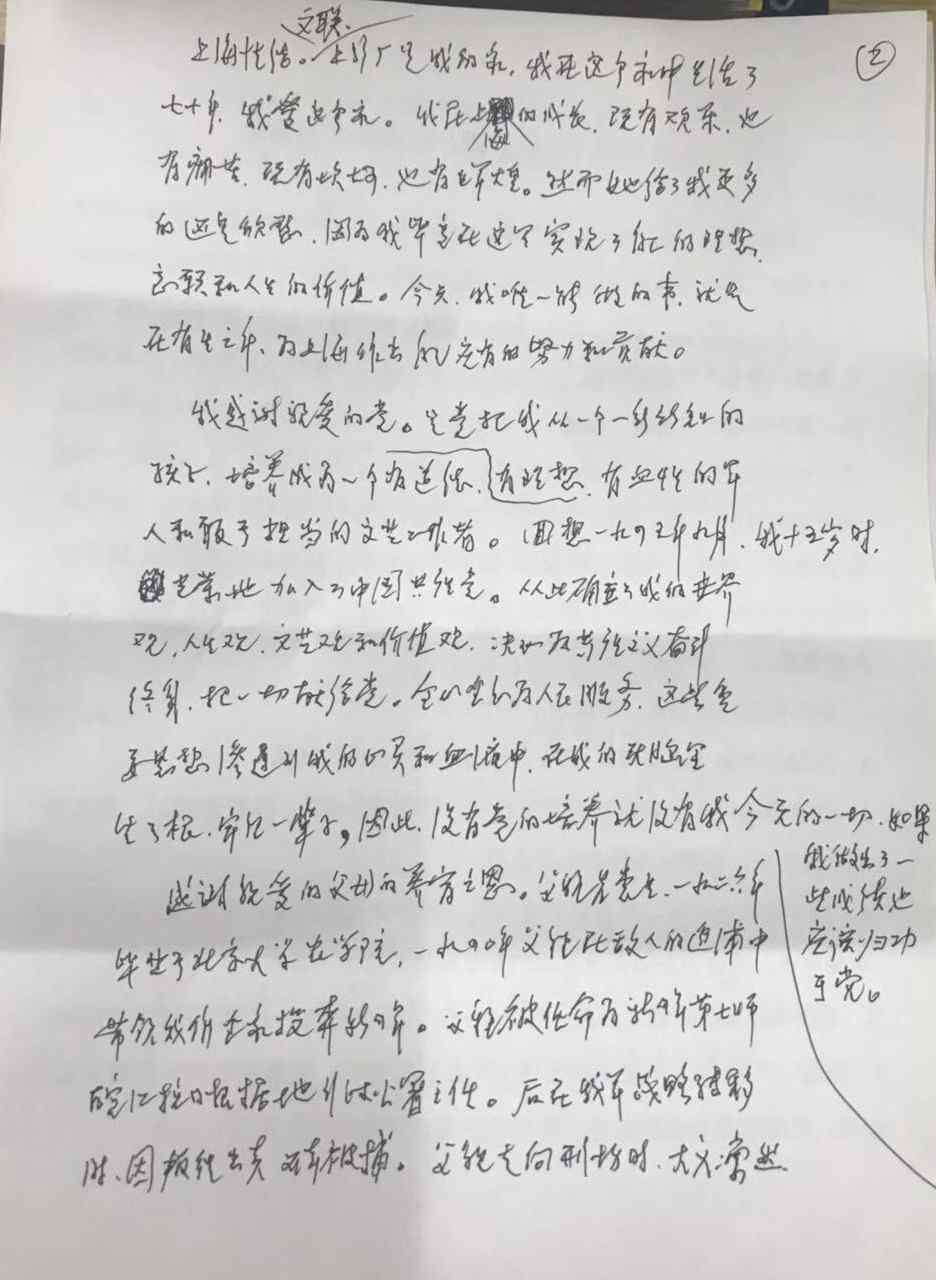 ②
文联、
上海作协。上影厂是我的家,我在这个家中生活了
七十年,我爱这个家。我在上海的成长,既有欢乐,也
有痛苦,既有坎坷,也有辉煌。然而她给了我更多
的还是欣慰,因为我毕竟在这里实现了自己的理想,
意愿和人生的价值。今天,我唯一能做的事,就是
在有生之年,为上海作出自己应有的努力和贡献。
我感谢亲爱的党。是党把我从一个一穷
孩子,培养成为一个有道德、有理想、有血性的军
人和敢于担当的文艺工作者。回想一九四五年九月,我十五岁时,
光荣地加入了中国共产党。从此确立了我的世界
观,人生观,文艺观和价值观,决心为共产主义奋斗
终身,把一切献给党。全心全意为人民服务,这些重
要思想渗透到我的心灵和血液中,在我的头脑里
生了根,牢记一辈子。因此,没有党的培养就没有我今天的一切,如果
我做出了一
些成绩也
应该归功
于党。
感谢亲爱的父母的养育之恩。父亲是党员,一九二六年
毕业于北京大学农学院,一九四〇年父亲在敌人的追捕中
带领我们全家投奔新四军。父亲被任命为新四军第七师
皖江抗日根据地行政公署主任。后在我军战略转移
时,因叛徒出卖不幸被捕。父亲走向刑场时,大义凛然